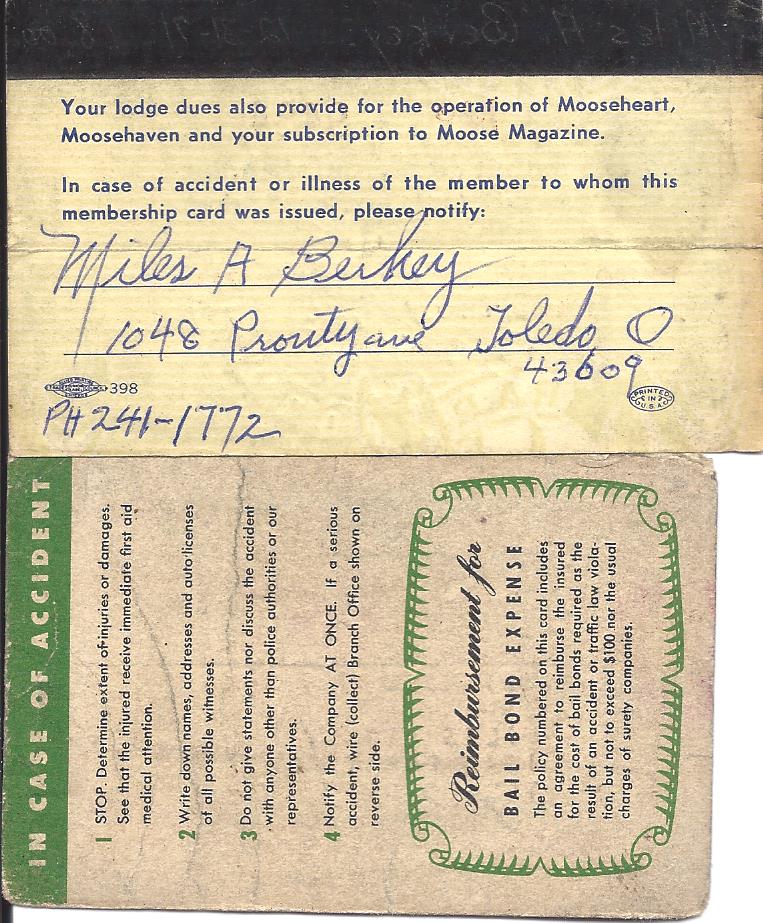 Miles A Berkey 12-31-71
Your lodge dues also provide for the operation of Mooseheart,
Moosehaven and your subscription to Moose Magazine.
In case of accident or illness of the member to whom this
membership card was issued, please notify:
Miles A Berkey
1048 Prouty ave Toledo, O
43609
398
PRINTED
IN
U.S.A.
PH 241-1772
IN CASE OF ACCIDENT
1 STOP. Determine extent of injuries or damages.
See that the injured receive immediate first aid
medical attention.
2 Write down names, addresses and auto licenses
of all possible witnesses.
3 Do not give statements nor discuss the accident
with anyone other than police authorities or our
representatives.
4 Notify the Company AT ONCE. If a serious
accident, wire (collect) Branch Office shown on
reverse side.
Reimbursement for
BAIL BOND EXPENSE
The policy numbered on this card includes
an agreement to reimburse the insured
for the cost of bail bonds required as the
result of an accident or traffic law viola-
tion, but not to exceed $100 nor the usual
charges of surety companies.